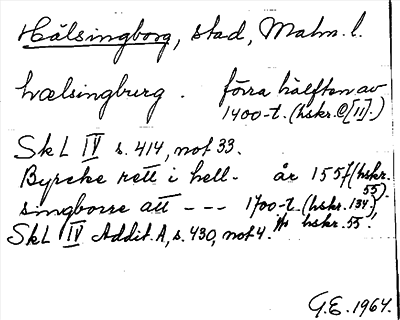 Hälsingborg, stad, Malm. l.
hælsingburg. förra hälften av
1400-t. (hskr. @ [11].)
SkL IV s. 414, not 33.
Byrcke rett i hell- år 155
singborre att --- 1700-t. (hskr. 134),
hskr. 55.
SkL IV Addit. A, s. 430, not 4.
G.E. 1964.